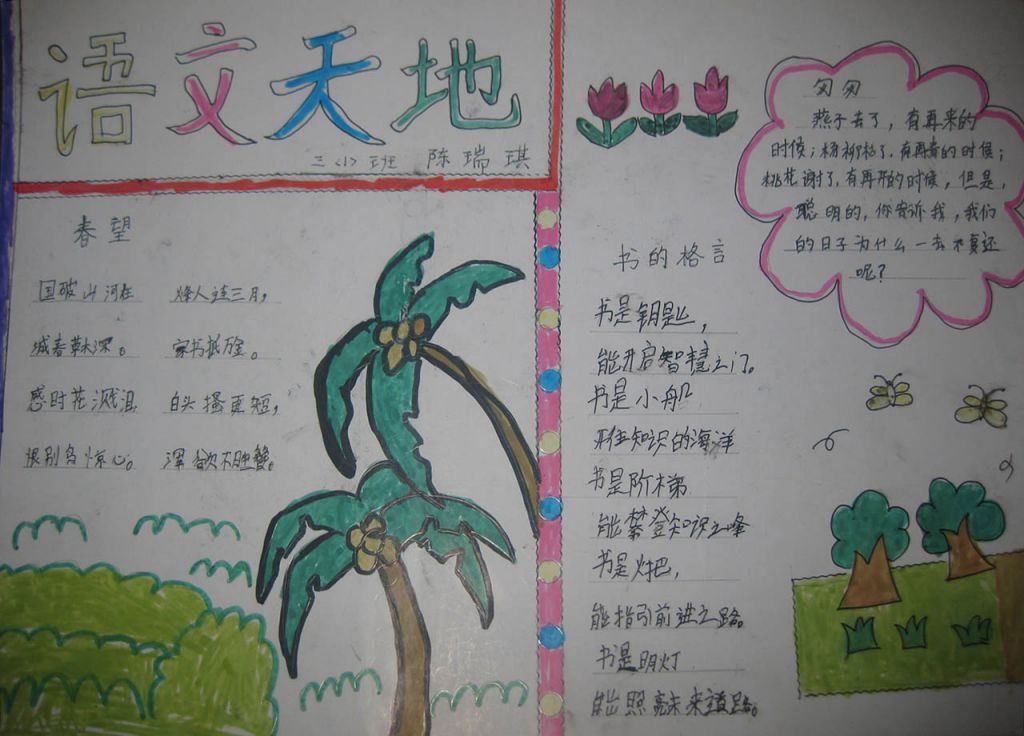 语文天地
三(小)班 陈瑞琪
春望
国破山河在 烽人连三月，
城春草木深。 家书抵万金。
感时花溅泪 白头搔更短，
恨别鸟惊心。 浑欲不胜簪。
书的格言
书是钥匙，
能开启智慧之门。
书是小船
环住知识的海洋
书是阶梯
能攀登知识之峰
书是火巴，
能指引前进之路。
书是明灯
能照亮未来道路。
匆匆
燕子去了，有再来的
时候；杨柳枯了，有再青的时候；
桃花谢了，有再开的时候，但是，
聪明的，你告诉我，我们
的日子为什么一去不复还
呢？